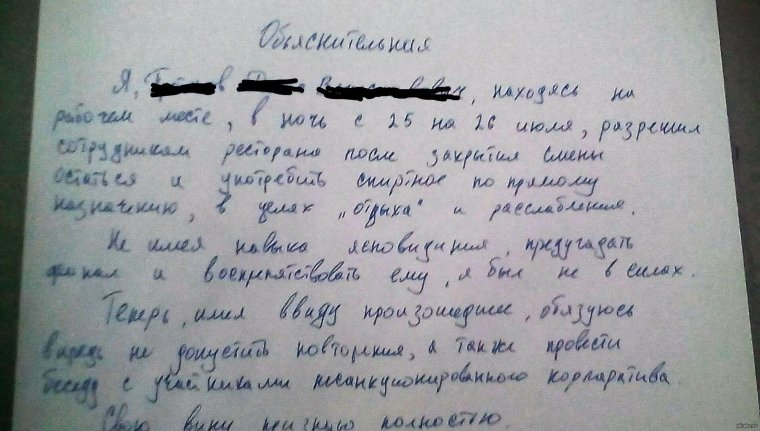 Объяснительная
Я, находясь на
рабочем месте, в ночь с 25 на 26 июля, разрешил
сотрудникам ресторана после закрытия смены
остаться и употребить спиртное по прямому
назначению, в целях „отдыха“ и расслабления.
Не имея навыка ясновидиния, предугадать
финал и воспрепятствовать ему, я был не в силах.
Теперь, имея ввиду произошедшее, обязуюсь
впредь не допустить повторения, а также провести
беседу с участниками несанкционированного корпоратива.
Свою вину признаю полностью.
pikabu.ru